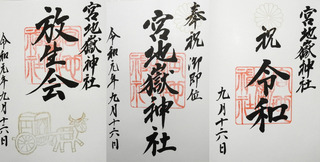 宮地嶽神社
放生会
令和元年九月十六日
奉祝 御即位
宮地嶽神社
令和元年九月十六日
宮地嶽神社
祝 令和
九月十六日